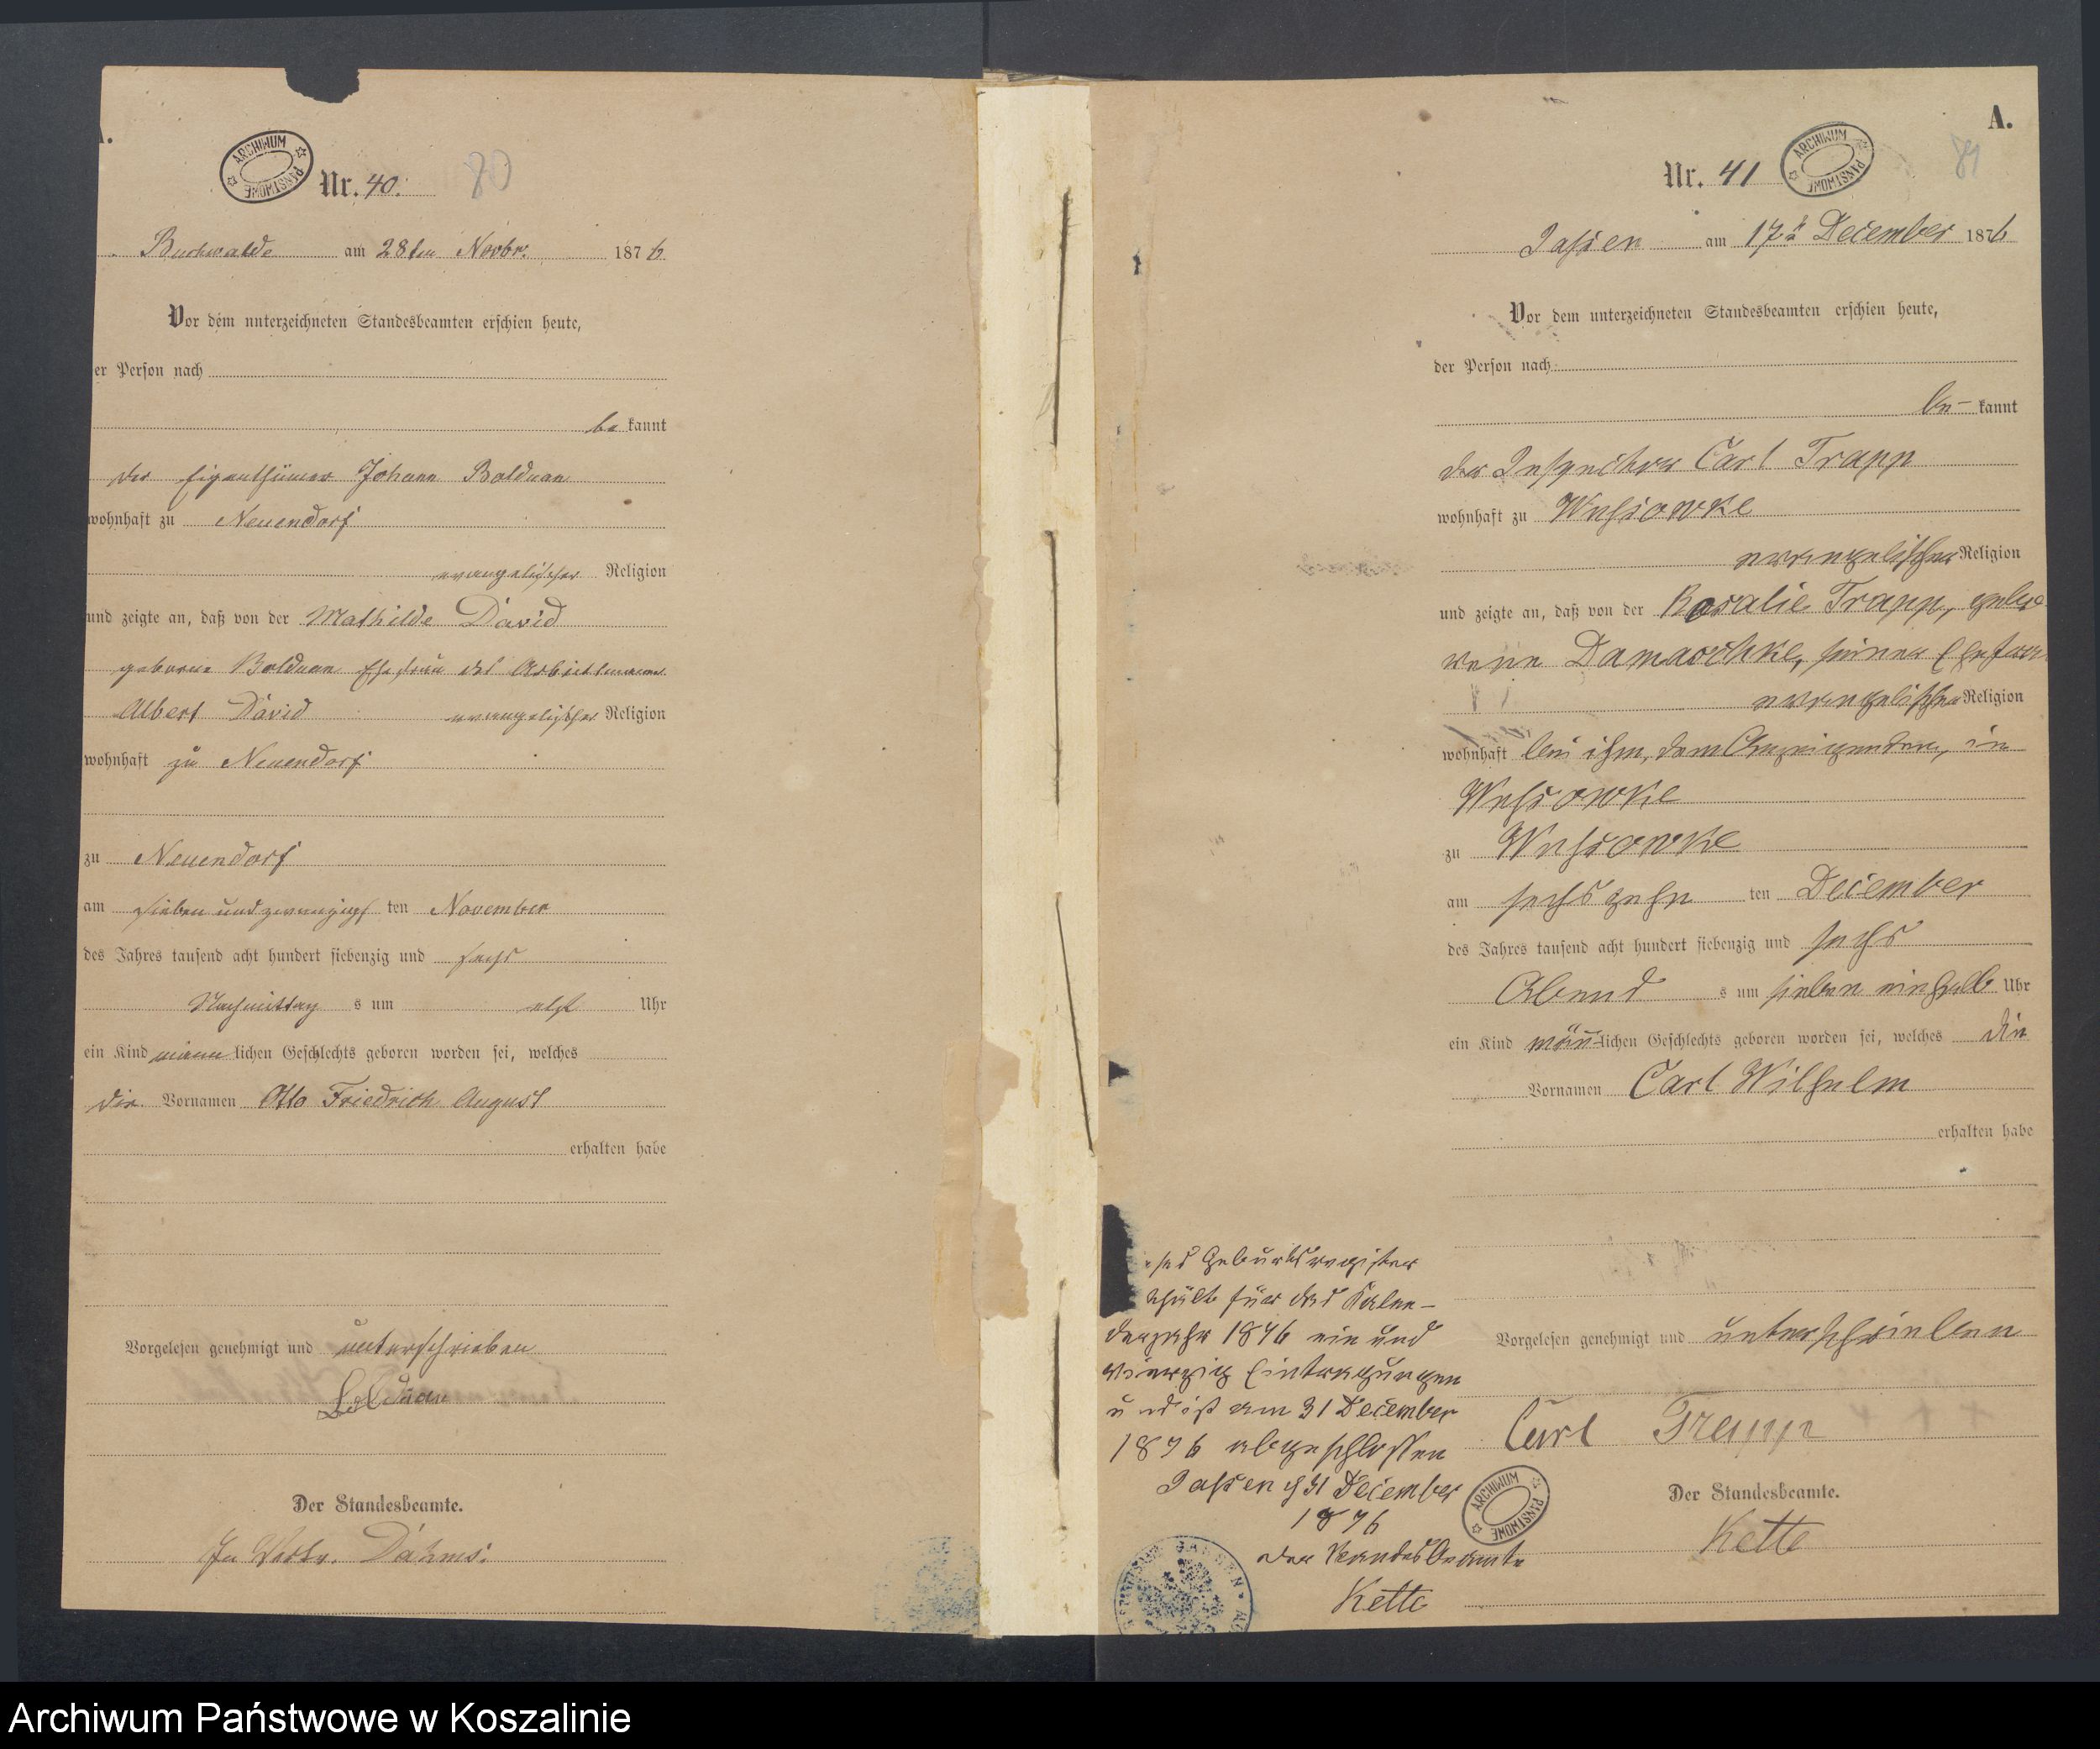 A.
ARCHIWUM PAŃSTWOWE
Nr. 40.
80
Buchwalde am 28ten Novbr. 1876
Vor dem unterzeichneten Standesbeamten erschien heute,
er Person nach
be kannt
der Eigenthümer Johann Balduan
wohnhaft zu Neuendorf
evangelischer Religion
und zeigte an, daß von der Mathilde David
geborne Balduan Ehefrau des Arbeitsmann
Albert David evangelischer Religion
wohnhaft zu Neuendorf
zu Neuendorf
am sieben und zwanzigst ten November
des Jahres tausend acht hundert siebenzig und sechs
Nachmittag s um elf Uhr
ein Kind männ lichen Geschlechts geboren worden sei, welches
die Vornamen Otto Friedrich August
erhalten habe
Vorgelesen genehmigt und unterschrieben
Balduan
Der Standesbeamte.
In Vertr. Dahms.
A.
Nr. 41
ARCHIWUM PAŃSTWOWE
Jassen am 17ten December 1876
Vor dem unterzeichneten Standesbeamten erschien heute,
der Person nach
be- kannt
der Inspector Carl Trapp
wohnhaft zu Wussowke
evangelischer Religion
und zeigte an, daß von der Rosalie Trapp, gebo
rene Damaschke, seiner Ehefrau
evangelischer Religion
wohnhaft bei ihm, dem Anzeigenden, in
Wussowke
zu Wussowke
am sechszehn ten December
des Jahres tausend acht hundert siebenzig und sechs
Abend s um sieben einhalb Uhr
ein Kind männ- lichen Geschlechts geboren worden sei, welches die
Vornamen Carl Wilhelm
erhalten habe
Vorgelesen genehmigt und unterschrieben
Carl Trapp
Der Standesbeamte.
Kette
ses Geburtsregister
thält für das Kalen-
derjahr 1876 ein und
vierzig Eintragungen
und ist am 31 December
1876 abgeschlossen
Jassen d 31 December
1876
der Standesbeamte
Kette
ARCHIWUM PAŃSTWOWE
Archiwum Państwowe w Koszalinie